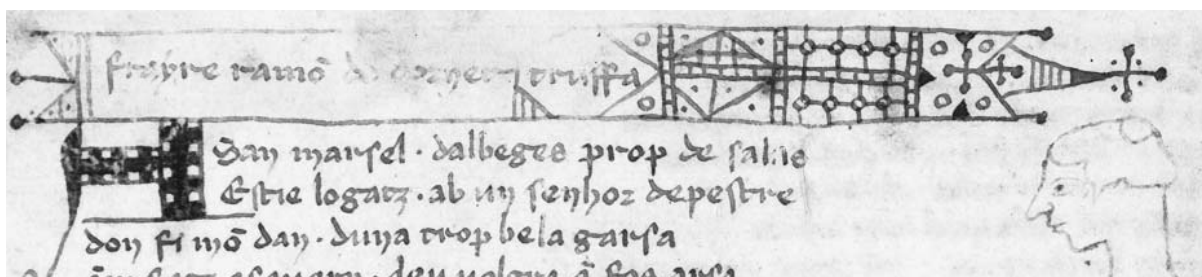 frayre ramō de cornet truffa
A San marsel · dalbeges prop de salas
Estie logatz · ab un senhor depestre
don fi mō dan · duna trop bela garsa
fos arsa